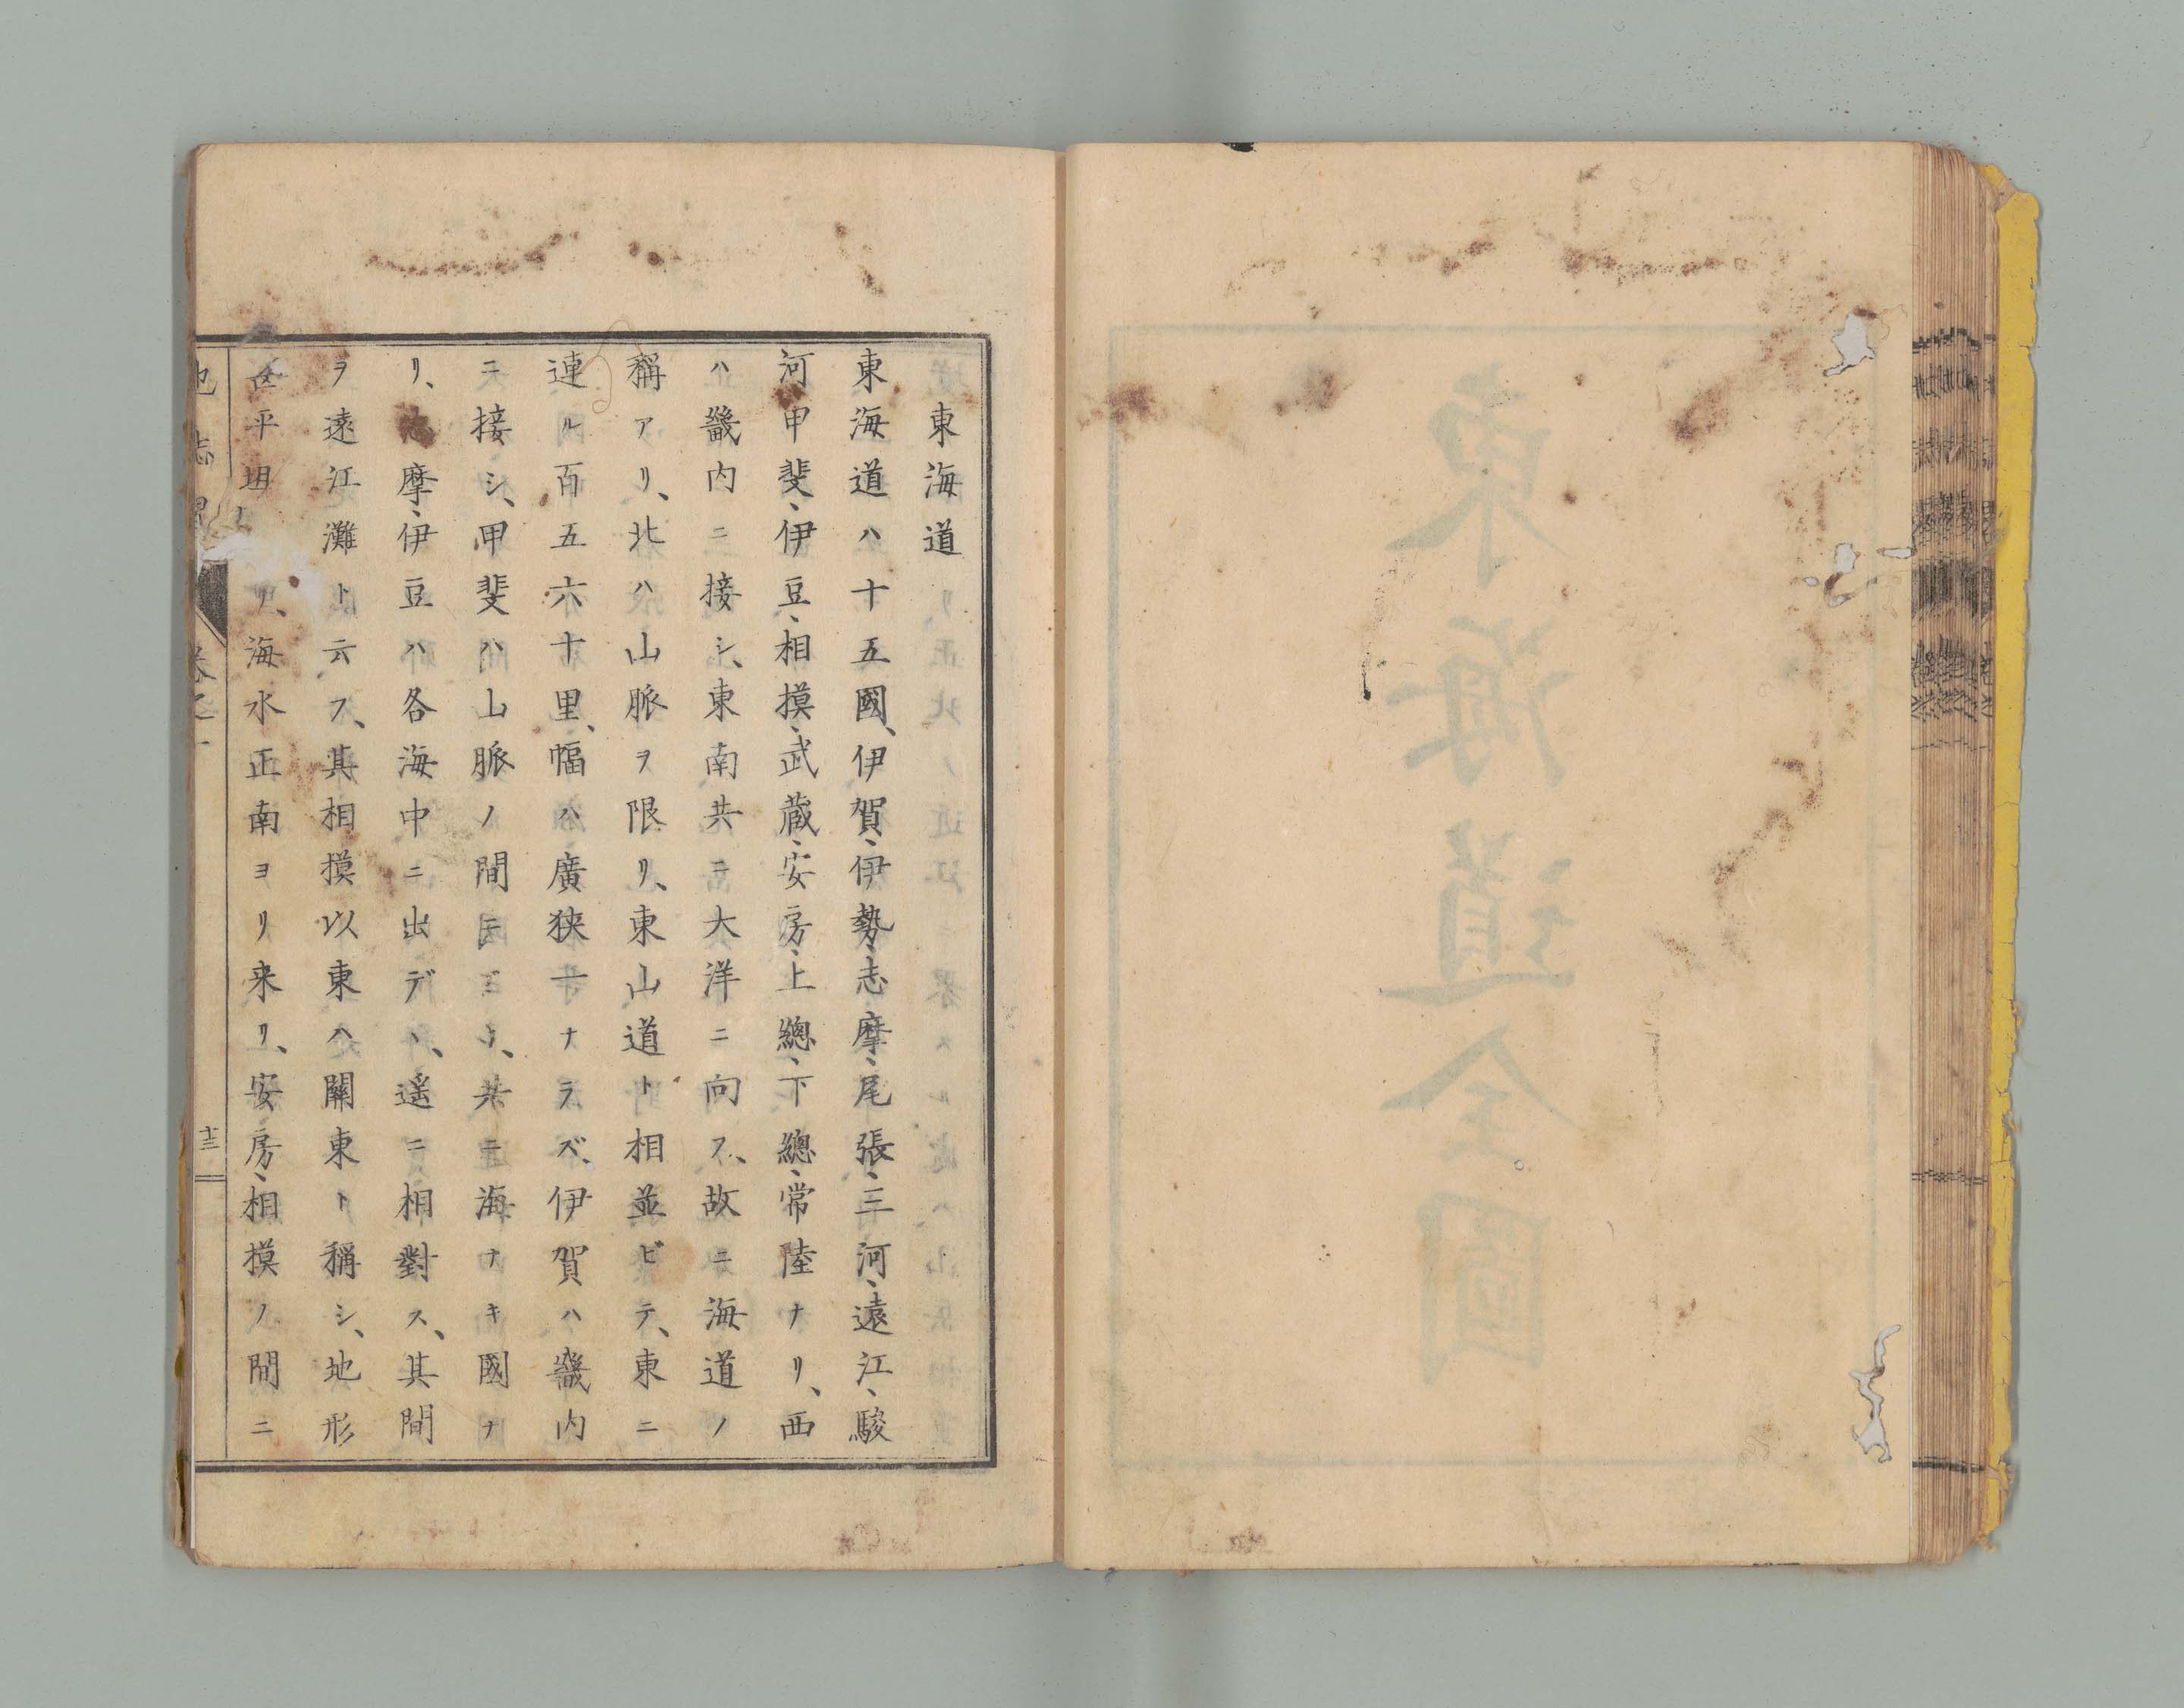 東海道全圖
東海道
東海道ハ十五國、伊賀、伊勢、志摩、尾張、三河、遠江、駿
河甲斐、伊豆、相摸、武藏、安房、上總、下總、常陸ナリ、西
ハ畿内ニ接シ、東南共ニ大洋ニ向フ、故ニ海道ノ
稱アリ、北ハ山脈ヲ限リ、東山道ト相並ビテ、東ニ
連ル百五六十里、幅ハ廣狹一ナラズ、伊賀ハ畿内
ニ接シ、甲斐ハ山脈ノ間ニ共ニ海ナキ國ナ
リ、志摩、伊豆ハ各海中ニ出デヽ、遙ニ相對ス、其間
ヲ遠江灘ト云フ、其相摸以東ハ關東ト稱シ、地形
平坦リ、海水正南ヨリ来リ、安房、相摸ノ間ニ
地志
卷之一
十三